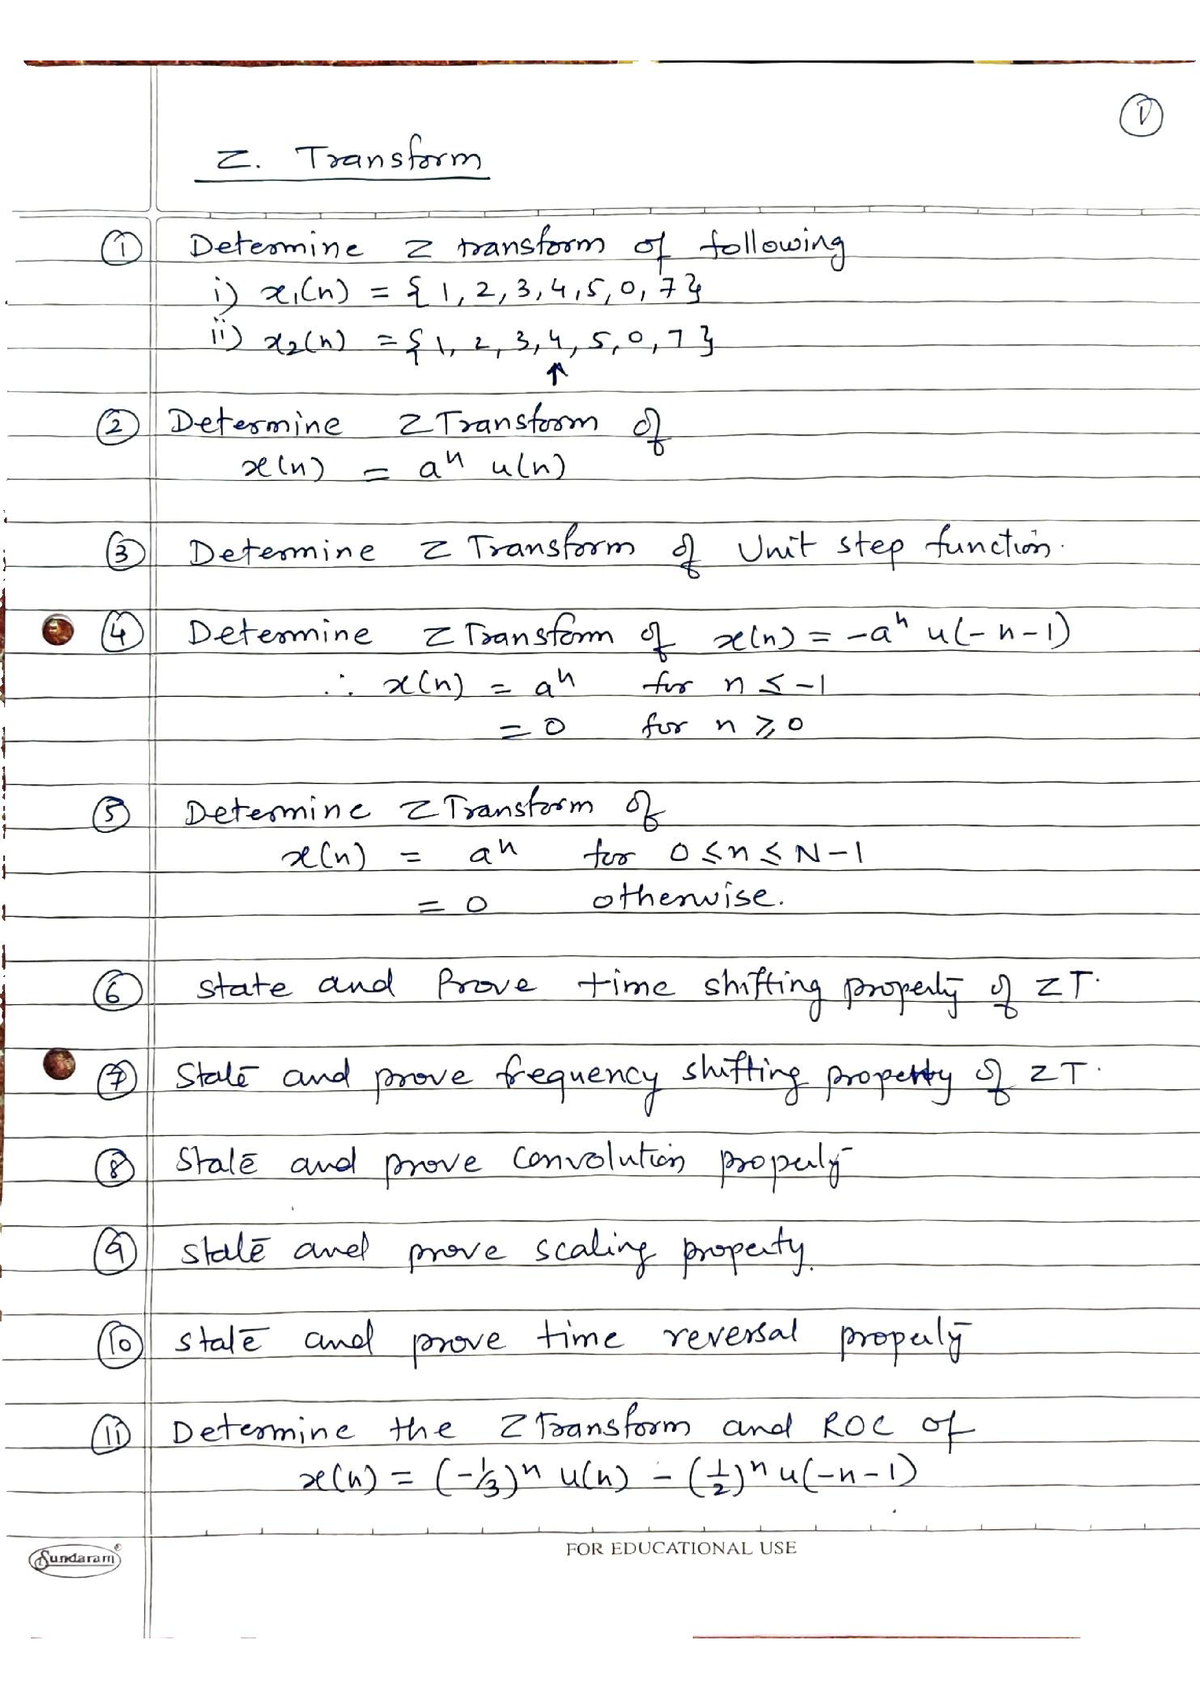 ①
Z. Transform
① Determine Z transform of following
i) x₁(n) = { 1, 2, 3, 4, 5, 0, 7 }
ii) x₂(n) = { 1, 2, 3, 4, 5, 0, 7 }
↑
② Determine Z Transform of
x(n) = aⁿ u(n)
③ Determine Z Transform of Unit step function.
④ Determine Z Transform of x(n) = -aⁿ u(-n-1)
∴ x(n) = aⁿ for n ≤ -1
= 0 for n ≥ 0
⑤ Determine Z Transform of
x(n) = aⁿ for 0 ≤ n ≤ N-1
= 0 otherwise.
⑥ state and Prove time shifting property of ZT.
⑦ State and prove frequency shifting property of ZT.
⑧ State and prove Convolution property
⑨ state and prove scaling property.
⑩ state and prove time reversal property
⑪ Determine the Z Transform and ROC of
x(n) = (-1/3)ⁿ u(n) - (1/2)ⁿ u(-n-1)
Sundaram
FOR EDUCATIONAL USE